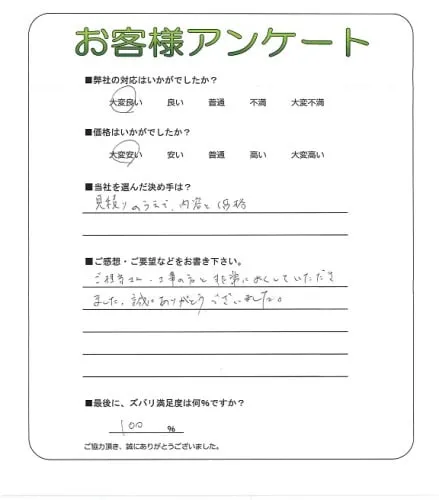 お客様アンケート
■弊社の対応はいかがでしたか？
大変良い 良い 普通 不満 大変不満
■価格はいかがでしたか？
大変安い 安い 普通 高い 大変高い
■当社を選んだ決め手は？
見積りのうえで、内容と価格
■ご感想・ご要望などをお書き下さい。
ご担当さん・工事の方と非常に良くしていただき
ました。誠にありがとうございました。
■最後に、ズバリ満足度は何％ですか？
100 ％
ご協力頂き、誠にありがとうございました。